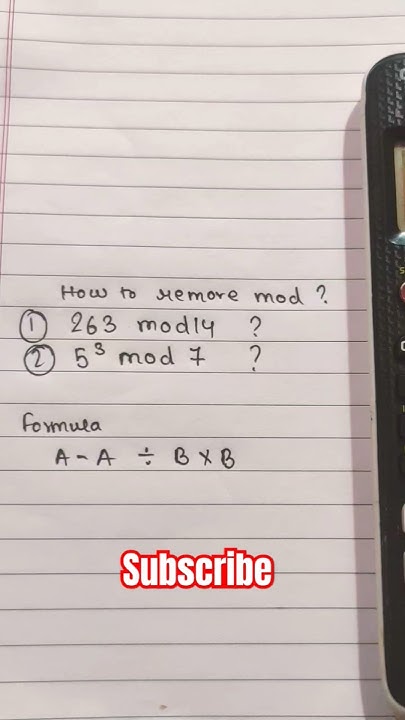 How to remove mod ?
① 263 mod14 ?
② 5³ mod 7 ?
Formula
A - A ÷ B × B
Subscribe